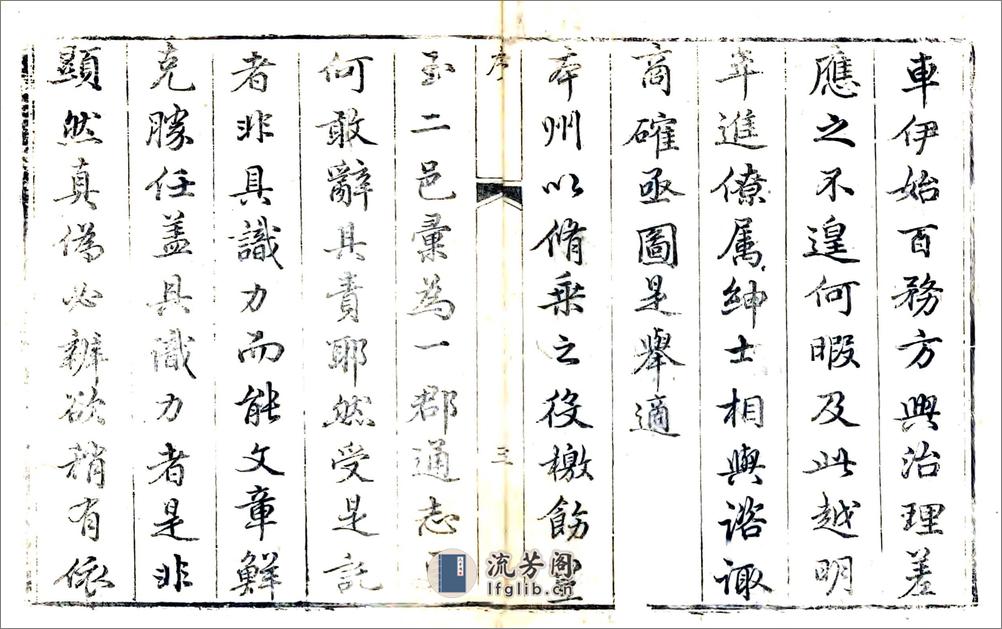 車伊始百務方興治理差
應之不遑何暇及此越明
年進僚属紳士相與諮諏
商確亟圖是舉適
本州以脩乘之役檄飭
序
三
二邑彙為一郡通志
何敢辭其責耶然受是託
者非具識力而能文章鮮
克勝任盖具識力者是非
顯然真偽必辨欲稍有依
流芳阁
lfglib.cn